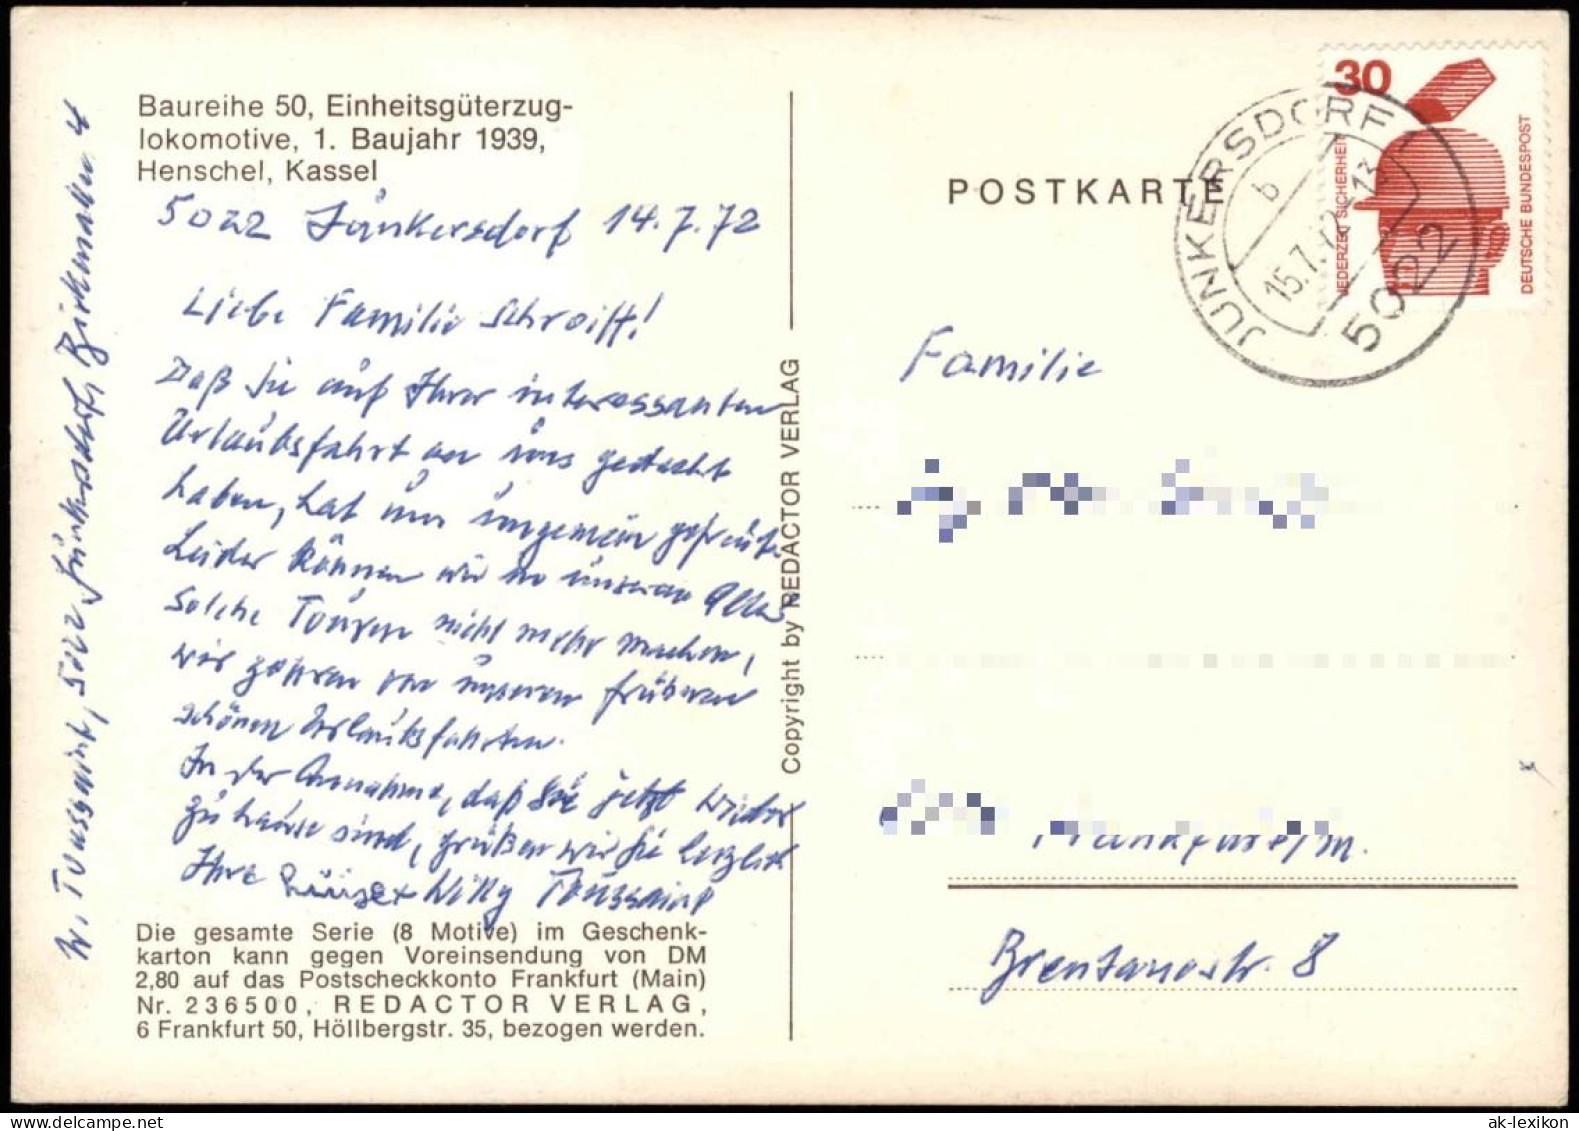 Baureihe 50, Einheitsgüterzug-
lokomotive, 1. Baujahr 1939,
Henschel, Kassel
5022 Junkersdorf 14.7.72
Liebe Familie Schroiff!
Daß Sie auf Ihrer interessanten
Urlaubsfahrt an uns gedacht
haben, hat uns ungemein gefreut.
Leider können wir in unserem Alter
solche Touren nicht mehr machen,
wir zehren von unseren früheren
schönen Urlaubsfahrten.
In der Annahme, daß Sie jetzt wieder
zu hause sind, grüßen wir Sie herzlich
Ihre Luise + Willy Toussaint
W. Toussaint, 5022 Junkersdorf, Birkenallee 4
Die gesamte Serie (8 Motive) im Geschenk-
karton kann gegen Voreinsendung von DM
2,80 auf das Postscheckkonto Frankfurt (Main)
Nr. 236500, REDACTOR VERLAG,
6 Frankfurt 50, Höllbergstr. 35, bezogen werden.
Copyright by REDACTOR VERLAG
POSTKARTE
30
JEDERZEIT SICHERHEIT
DEUTSCHE BUNDESPOST
JUNKERSDORF
b
15.7.72-13
5022
Familie
Frankfurt/m.
Brentanostr. 8
ak-lexikon